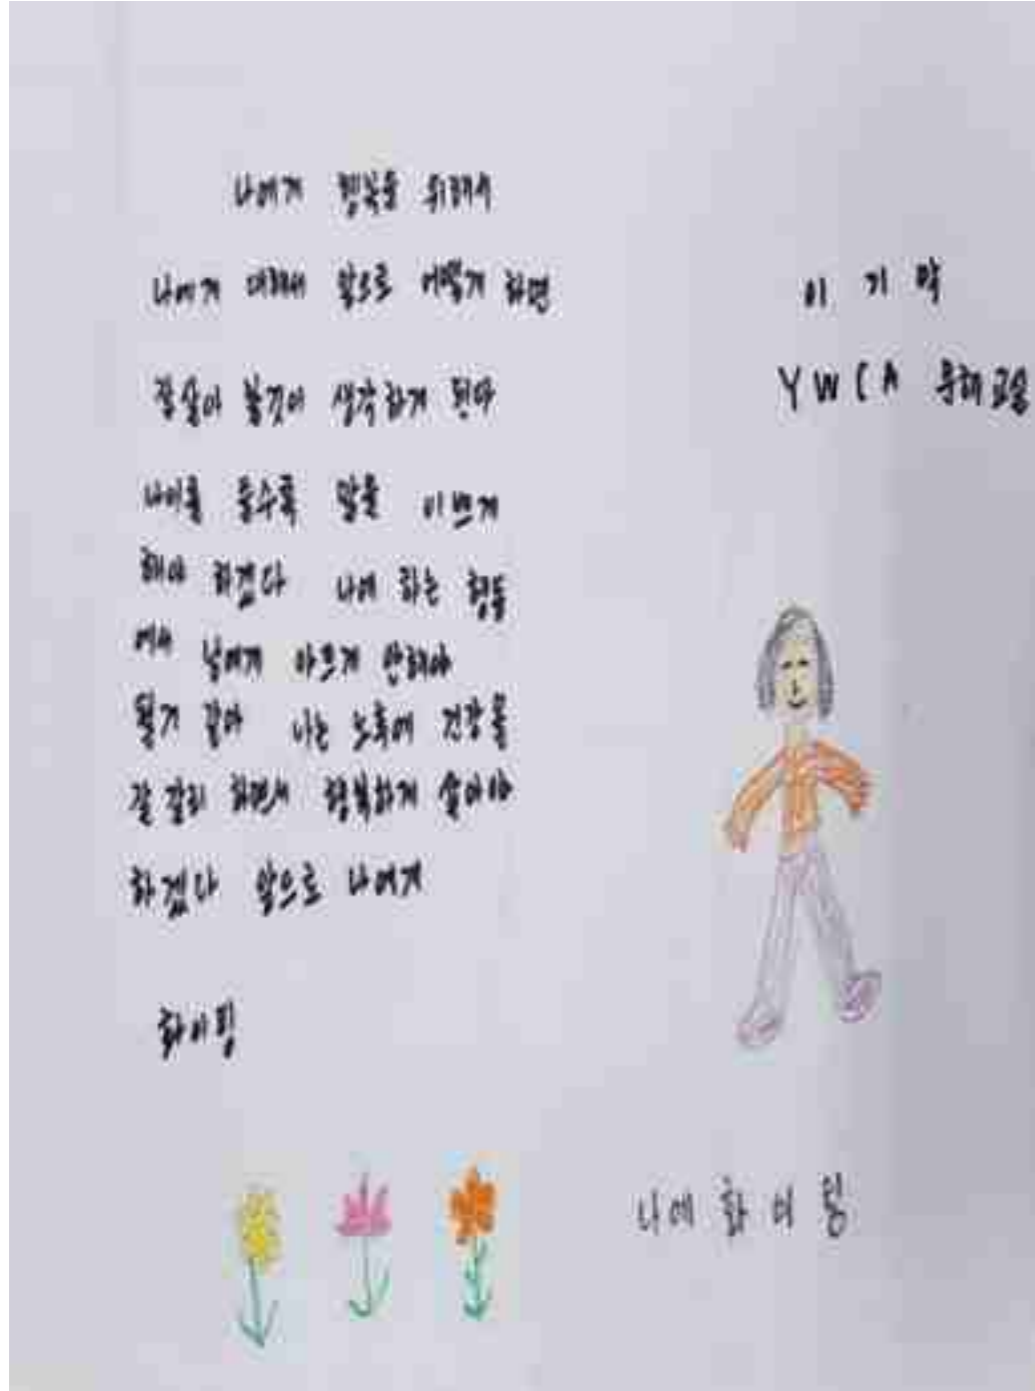 나에게 행복을 위해서
나에게 대해서 앞으로 어떻게 하면
잘살아 볼것이 생각하게 된다
나이를 들수록 말을 이쁘게
해야 하겠다 나에 하는 행동
에서 남에게 아프게 안해야
될거 같아 나는 노후에 건강을
잘 하면서 행복하게 살아야
하겠다 앞으로 나에게
화이팅
이기막
YWCA 문해교실
나에 화이팅